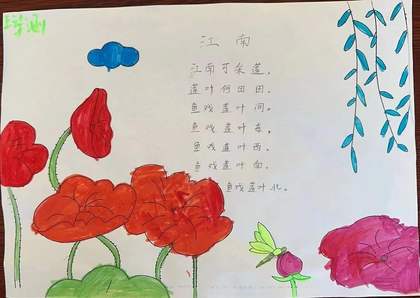 江南
江南可采莲，
莲叶何田田，
鱼戏莲叶间。
鱼戏莲叶东，
鱼戏莲叶西，
鱼戏莲叶南，
鱼戏莲叶北。